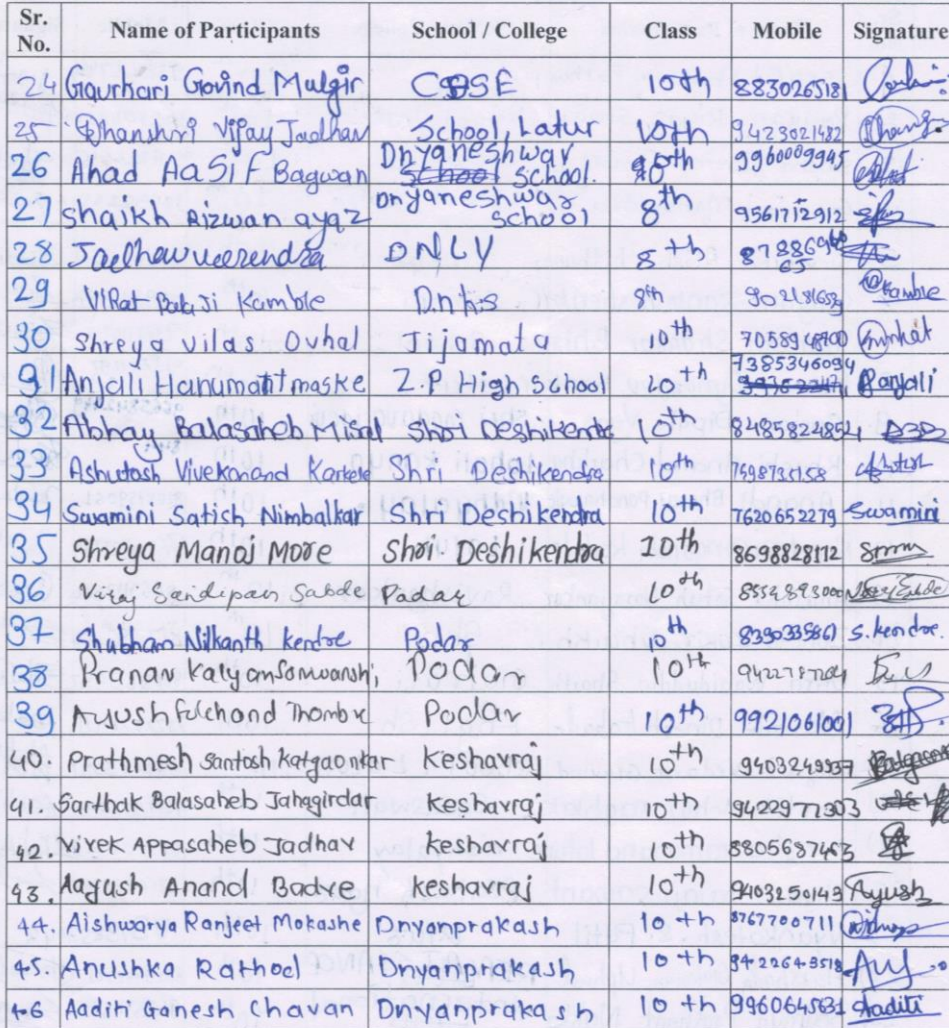 Sr. No. Name of Participants School / College Class Mobile Signature
24 Gaurhari Govind Mulgir CBSE 10th 8830265181
25 Dhanshri Vijay Jadhav School, Latur 10th 9423021482
26 Ahad AaSiF Bagwan Dnyaneshwar School. 10th 9960009945
27 Shaikh Rizwan ayaz Dnyaneshwar School 8th 9561712912
28 Jadhav veerendra DNLV 8th
29 VIRat Balaji Kamble D.n.R.S 8th Kamble
30 Shreya vilas Ovhal Jijamata 10th
31 Anjali Hanumant maske Z P High School 10th 7385346094 Ranjali
32 Abhay Balasaheb Misal Shri Deshikendra 10th 8485824852
33 Ashutosh Vivekanand Shri Deshikendra 10th
34 Swamini Satish Nimbalkar Shri Deshikendra 10th 7620652279 Swamini
35 Shreya Manoj More Shri Deshikendra 10th 8698828112
36 Viraj Sandipan Sabde Podar 10th
37 Shubham Nilkanth kendre Podar 10th 8390335861 S.kendre.
38 Pranav Kalyan Suryawanshi Podar 10th
39 Ayush fulchand Thombre Podar 10th 9921061001
40. Prathmesh Santosh Katgaonkar Keshavraj 10th
41. Sarthak Balasaheb Jahagirdar Keshavraj 10th 9422977303
42. Vivek Appasaheb Jadhav Keshavraj 10th 8805637463
43. Aayush Anand Badve keshavraj 10th 9403250143 Ayush
44. Aishwarya Ranjeet Mokashe Dnyanprakash 10th 8767700711
45. Anushka Rathod Dnyanprakash 10th 9422643518
46 Aaditi Ganesh Chavan Dnyanprakash 10th 9960645831 Aaditi